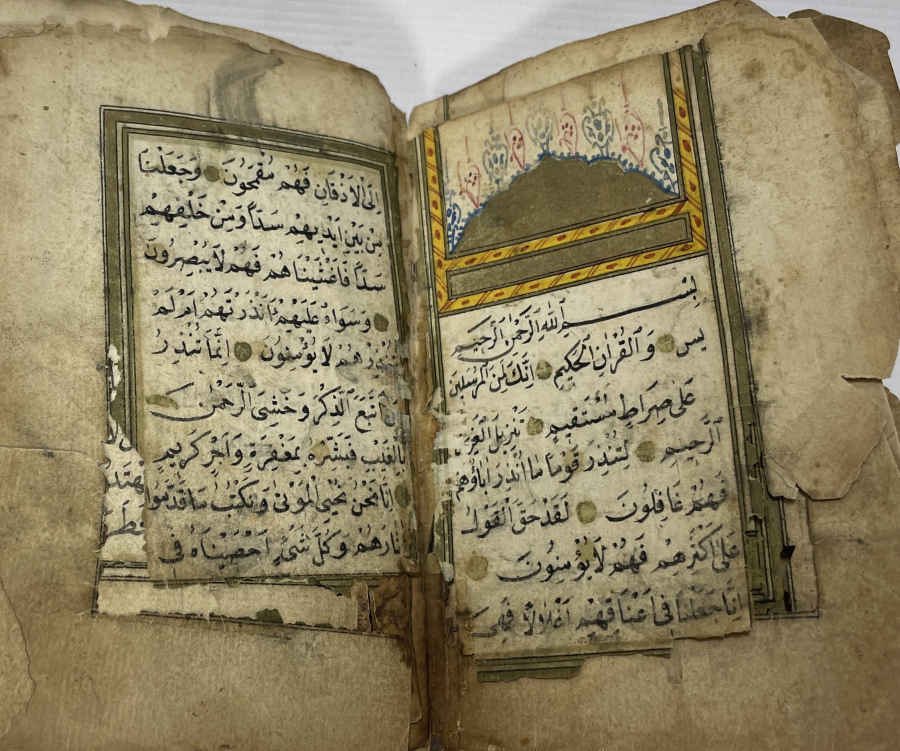 بِسْمِ اللّٰهِ الرَّحْمٰنِ الرَّحِيمِ
يس وَالْقُرْاٰنِ الْحَكِيمِ اِنَّكَ لَمِنَ الْمُرْسَلِينَ
عَلٰى صِرَاطٍ مُسْتَقِيمٍ تَنْزِيلَ الْعَزِيزِ
الرَّحِيمِ لِتُنْذِرَ قَوْمًا مَا اُنْذِرَ اٰبَاؤُهُمْ
فَهُمْ غَافِلُونَ لَقَدْ حَقَّ الْقَوْلُ
عَلٰى اَكْثَرِهِمْ فَهُمْ لَا يُؤْمِنُونَ
اِنَّا جَعَلْنَا فِى اَعْنَاقِهِمْ اَغْلَالًا فَهِىَ
اِلَى الْاَذْقَانِ فَهُمْ مُقْمَحُونَ وَجَعَلْنَا
مِنْ بَيْنِ اَيْدِيهِمْ سَدًّا وَمِنْ خَلْفِهِمْ
سَدًّا فَاَغْشَيْنَاهُمْ فَهُمْ لَا يُبْصِرُونَ
وَسَوَاءٌ عَلَيْهِمْ ءَاَنْذَرْتَهُمْ اَمْ لَمْ
تُنْذِرْهُمْ لَا يُؤْمِنُونَ اِنَّمَا تُنْذِرُ
مَنِ اتَّبَعَ الذِّكْرَ وَخَشِىَ الرَّحْمٰنَ
بِالْغَيْبِ فَبَشِّرْهُ بِمَغْفِرَةٍ وَاَجْرٍ كَرِيمٍ
اِنَّا نَحْنُ نُحْيِى الْمَوْتٰى وَنَكْتُبُ مَا قَدَّمُوا
وَاٰثَارَهُمْ وَكُلَّ شَىْءٍ اَحْصَيْنَاهُ فِى